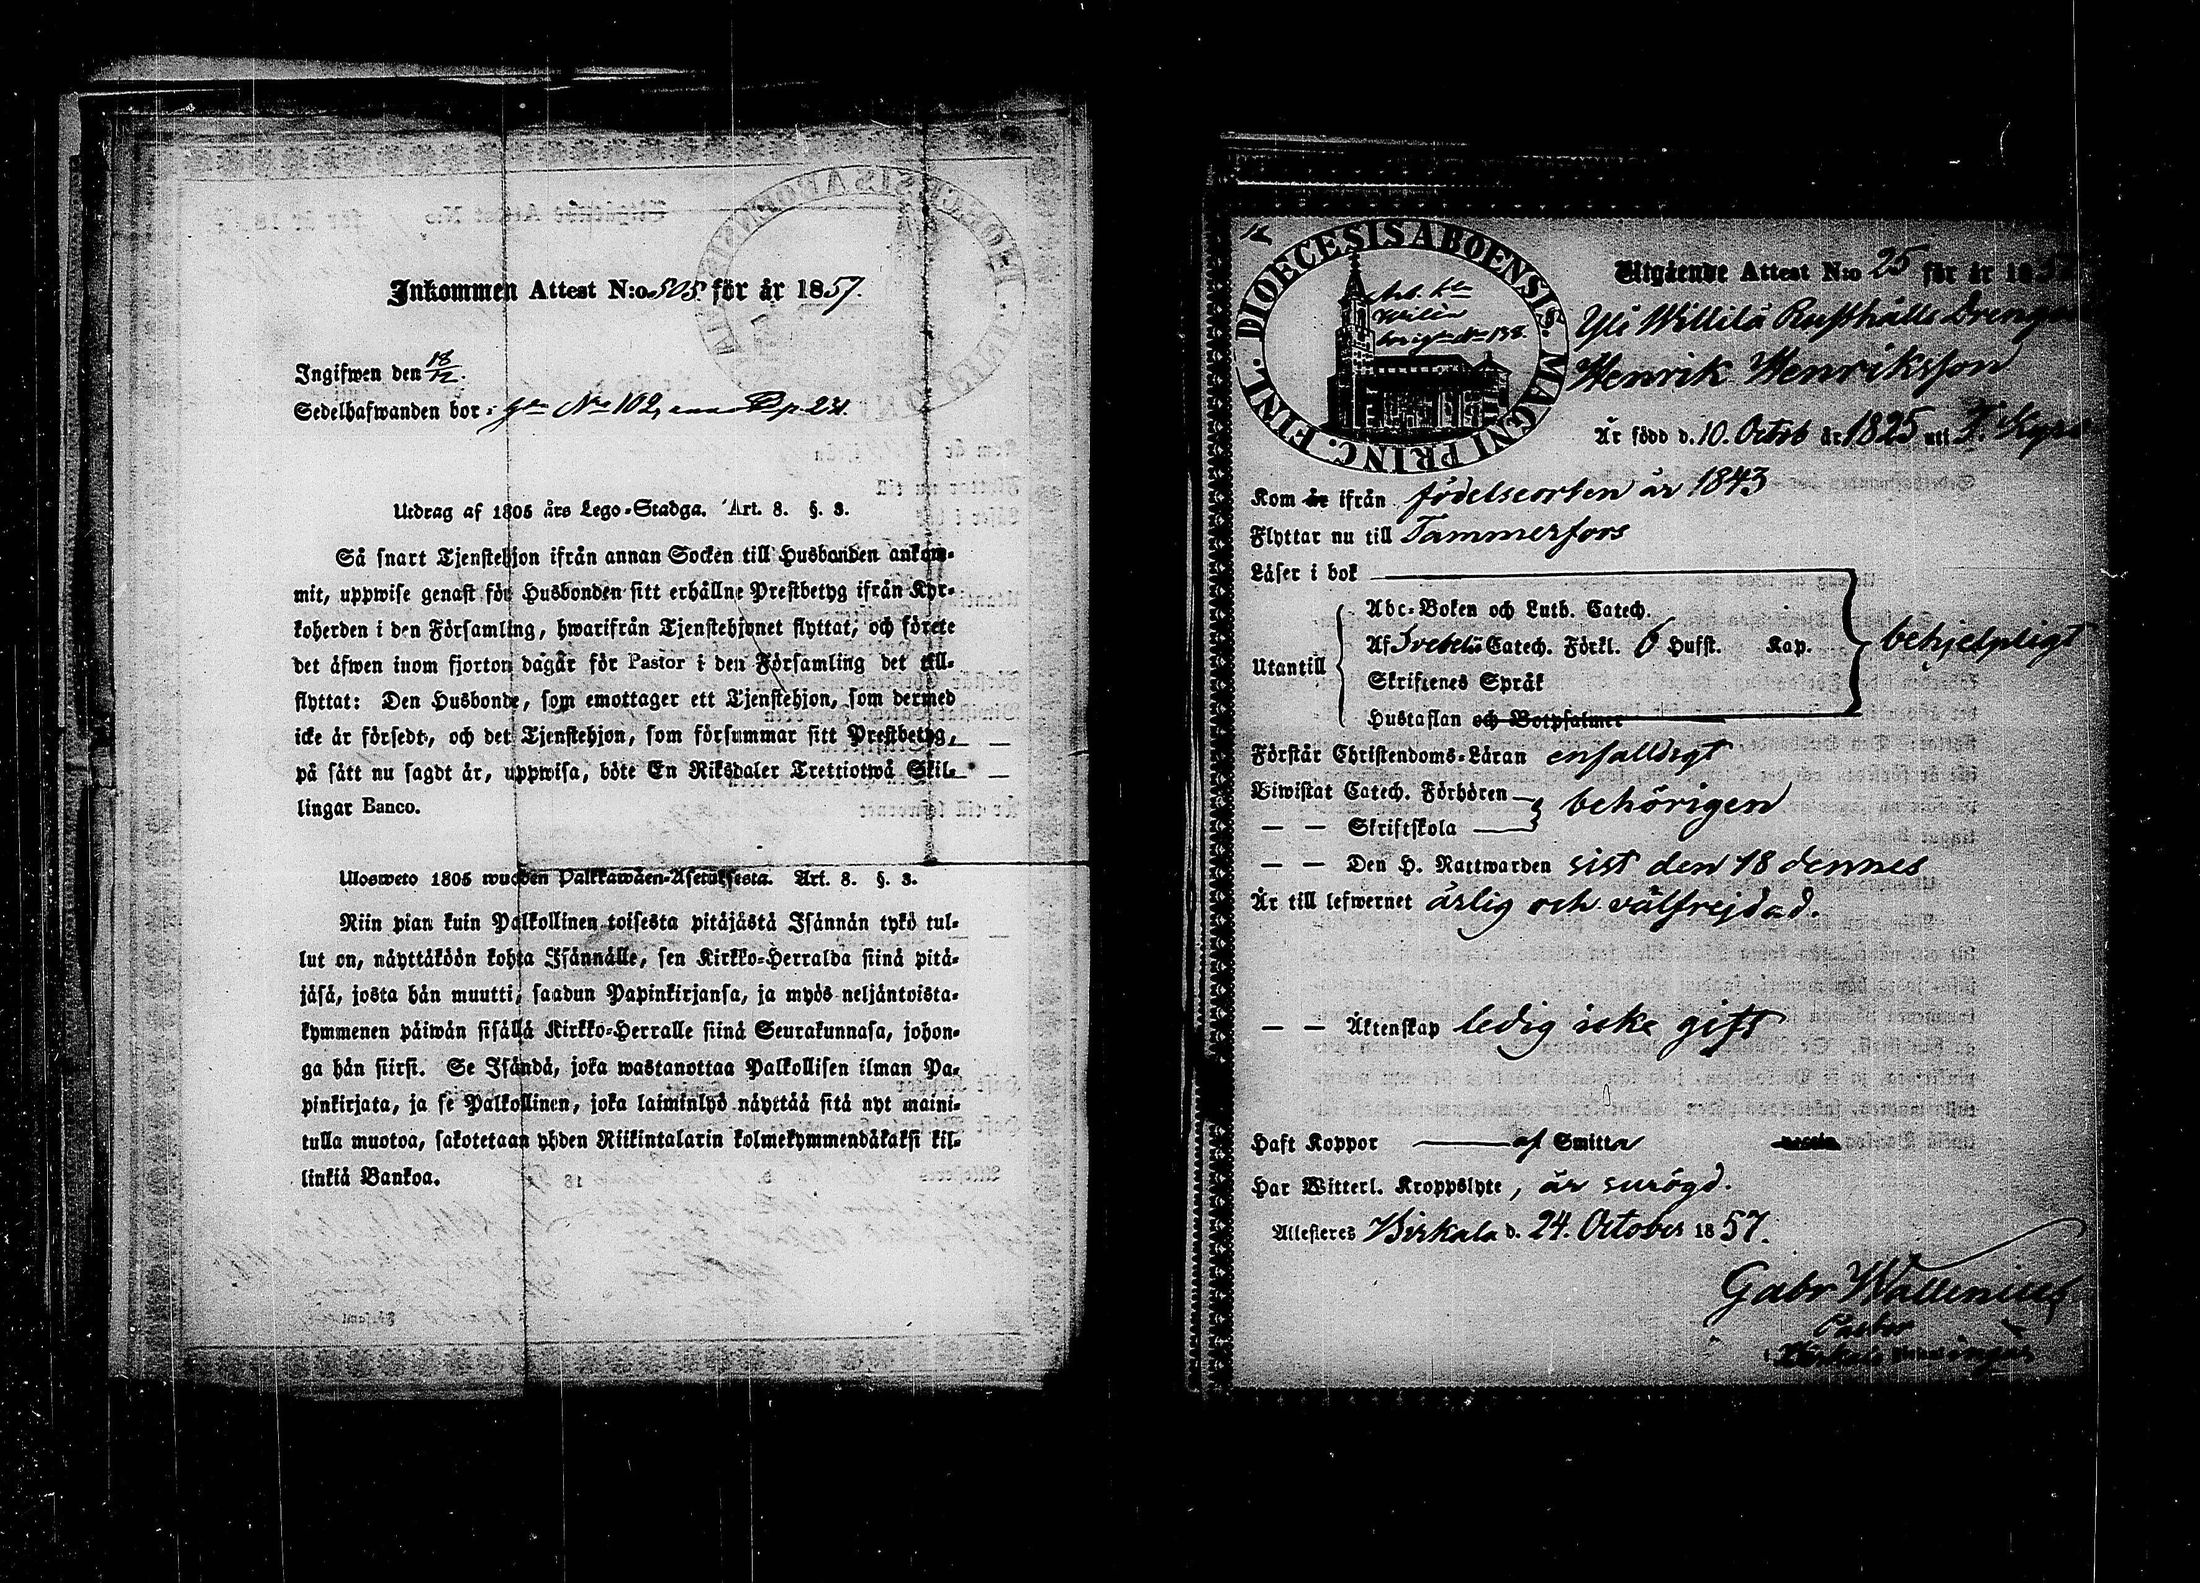 Inkommen Attest N:o 505. för år 1857.
Ingifwen den 18/12.
Sedelhafwanden bor: gn No 102, p. 231.
Utdrag af 1805 års Lego-Stadga. Art. 8. §. 3.
Så snart Tjenstehjon ifrån annan Socken till Husbonden ankom-
mit, uppwise genast för Husbonden sitt erhållne Prestbetyg ifrån Kyr-
koherden i den Församling, hwarifrån Tjenstehjonet flyttat, och förete
det äfwen inom fjorton dagar för Pastor i den Församling det till-
flyttat: Den Husbonde, som emottager ett Tjenstehjon, som dermed
icke är försedt, och det Tjenstehjon, som försummar sitt Prestbetyg,
på sätt nu sagdt är, uppwisa, böte En Riksdaler Trettiotwå Skil-
lingar Banco.
Ulosweto 1805 wuoden Palkkawäen-Asetuksesta. Art. 8. §. 3.
Niin pian kuin Palkollinen toisesta pitäjästä Isännän tykö tul-
lut on, näyttäköön kohta Isännälle, sen Kirkko-Herralda siinä pitä-
jäsä, josta hän muutti, saadun Papinkirjansa, ja myös neljäntoista-
kymmenen päiwän sisällä Kirkko-Herralle siinä Seurakunnasa, johon-
ga hän siirsi. Se Isändä, joka wastanottaa Palkollisen ilman Pa-
pinkirjata, ja se Palkollinen, joka laiminlyö näyttää sitä nyt maini-
tulla muotoa, sakotetaan yhden Riikintalarin kolmekymmendäkaksi kil-
linkiä Bankoa.
FINL. DIOECESIS ABOENSIS. MAGNI PRINC.
Arb. kln
Wilén
Utgående Attest N:o 25 för år 1857
Yli Willilä Rusthålls Drengen
Henrik Henriksson
Är född d. 10. Octob år 1825 uti T. Kyro
Kom år ifrån födelseorten år 1843
Flyttar nu till Tammerfors
Läser i bok
Utantill
Abc-Boken och Luth. Catech.
Af Svebelii Catech. Förkl. 6 Hufst. Kap.
behjelpligt
Skriftenes Språk
Hustaflan och Botpsalmer
Förstår Christendoms-Läran enfalldigt
Biwistat Catech. Förhören
behörigen
— — Skriftskola
— — Den H. Nattwarden sist den 18 dennes
Är till lefwernet ärlig och välfrejdad.
— — Äktenskap ledig icke gift
Haft Koppor af Smitta
Har Witterl. Kroppslyte, är surögd.
Attesteres Birkala d. 24. October 1857.
Gabr Wallenius
Pastor